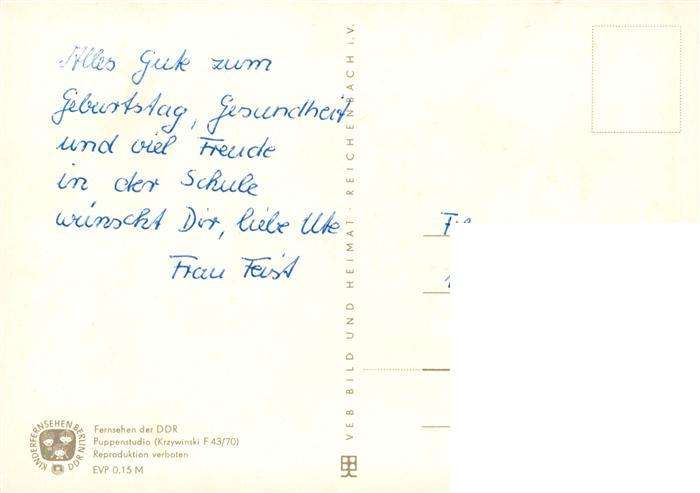 Alles Gute zum
Geburtstag, Gesundheit
und viel Freude
in der Schule
wünscht Dir, liebe Ute
Frau Feist
VEB BILD UND HEIMAT · REICHENBACH i. V.
KINDERFERNSEHEN BERLIN
DDR
Fernsehen der DDR
Puppenstudio (Krzywinski F 43/70)
Reproduktion verboten
EVP 0,15 M